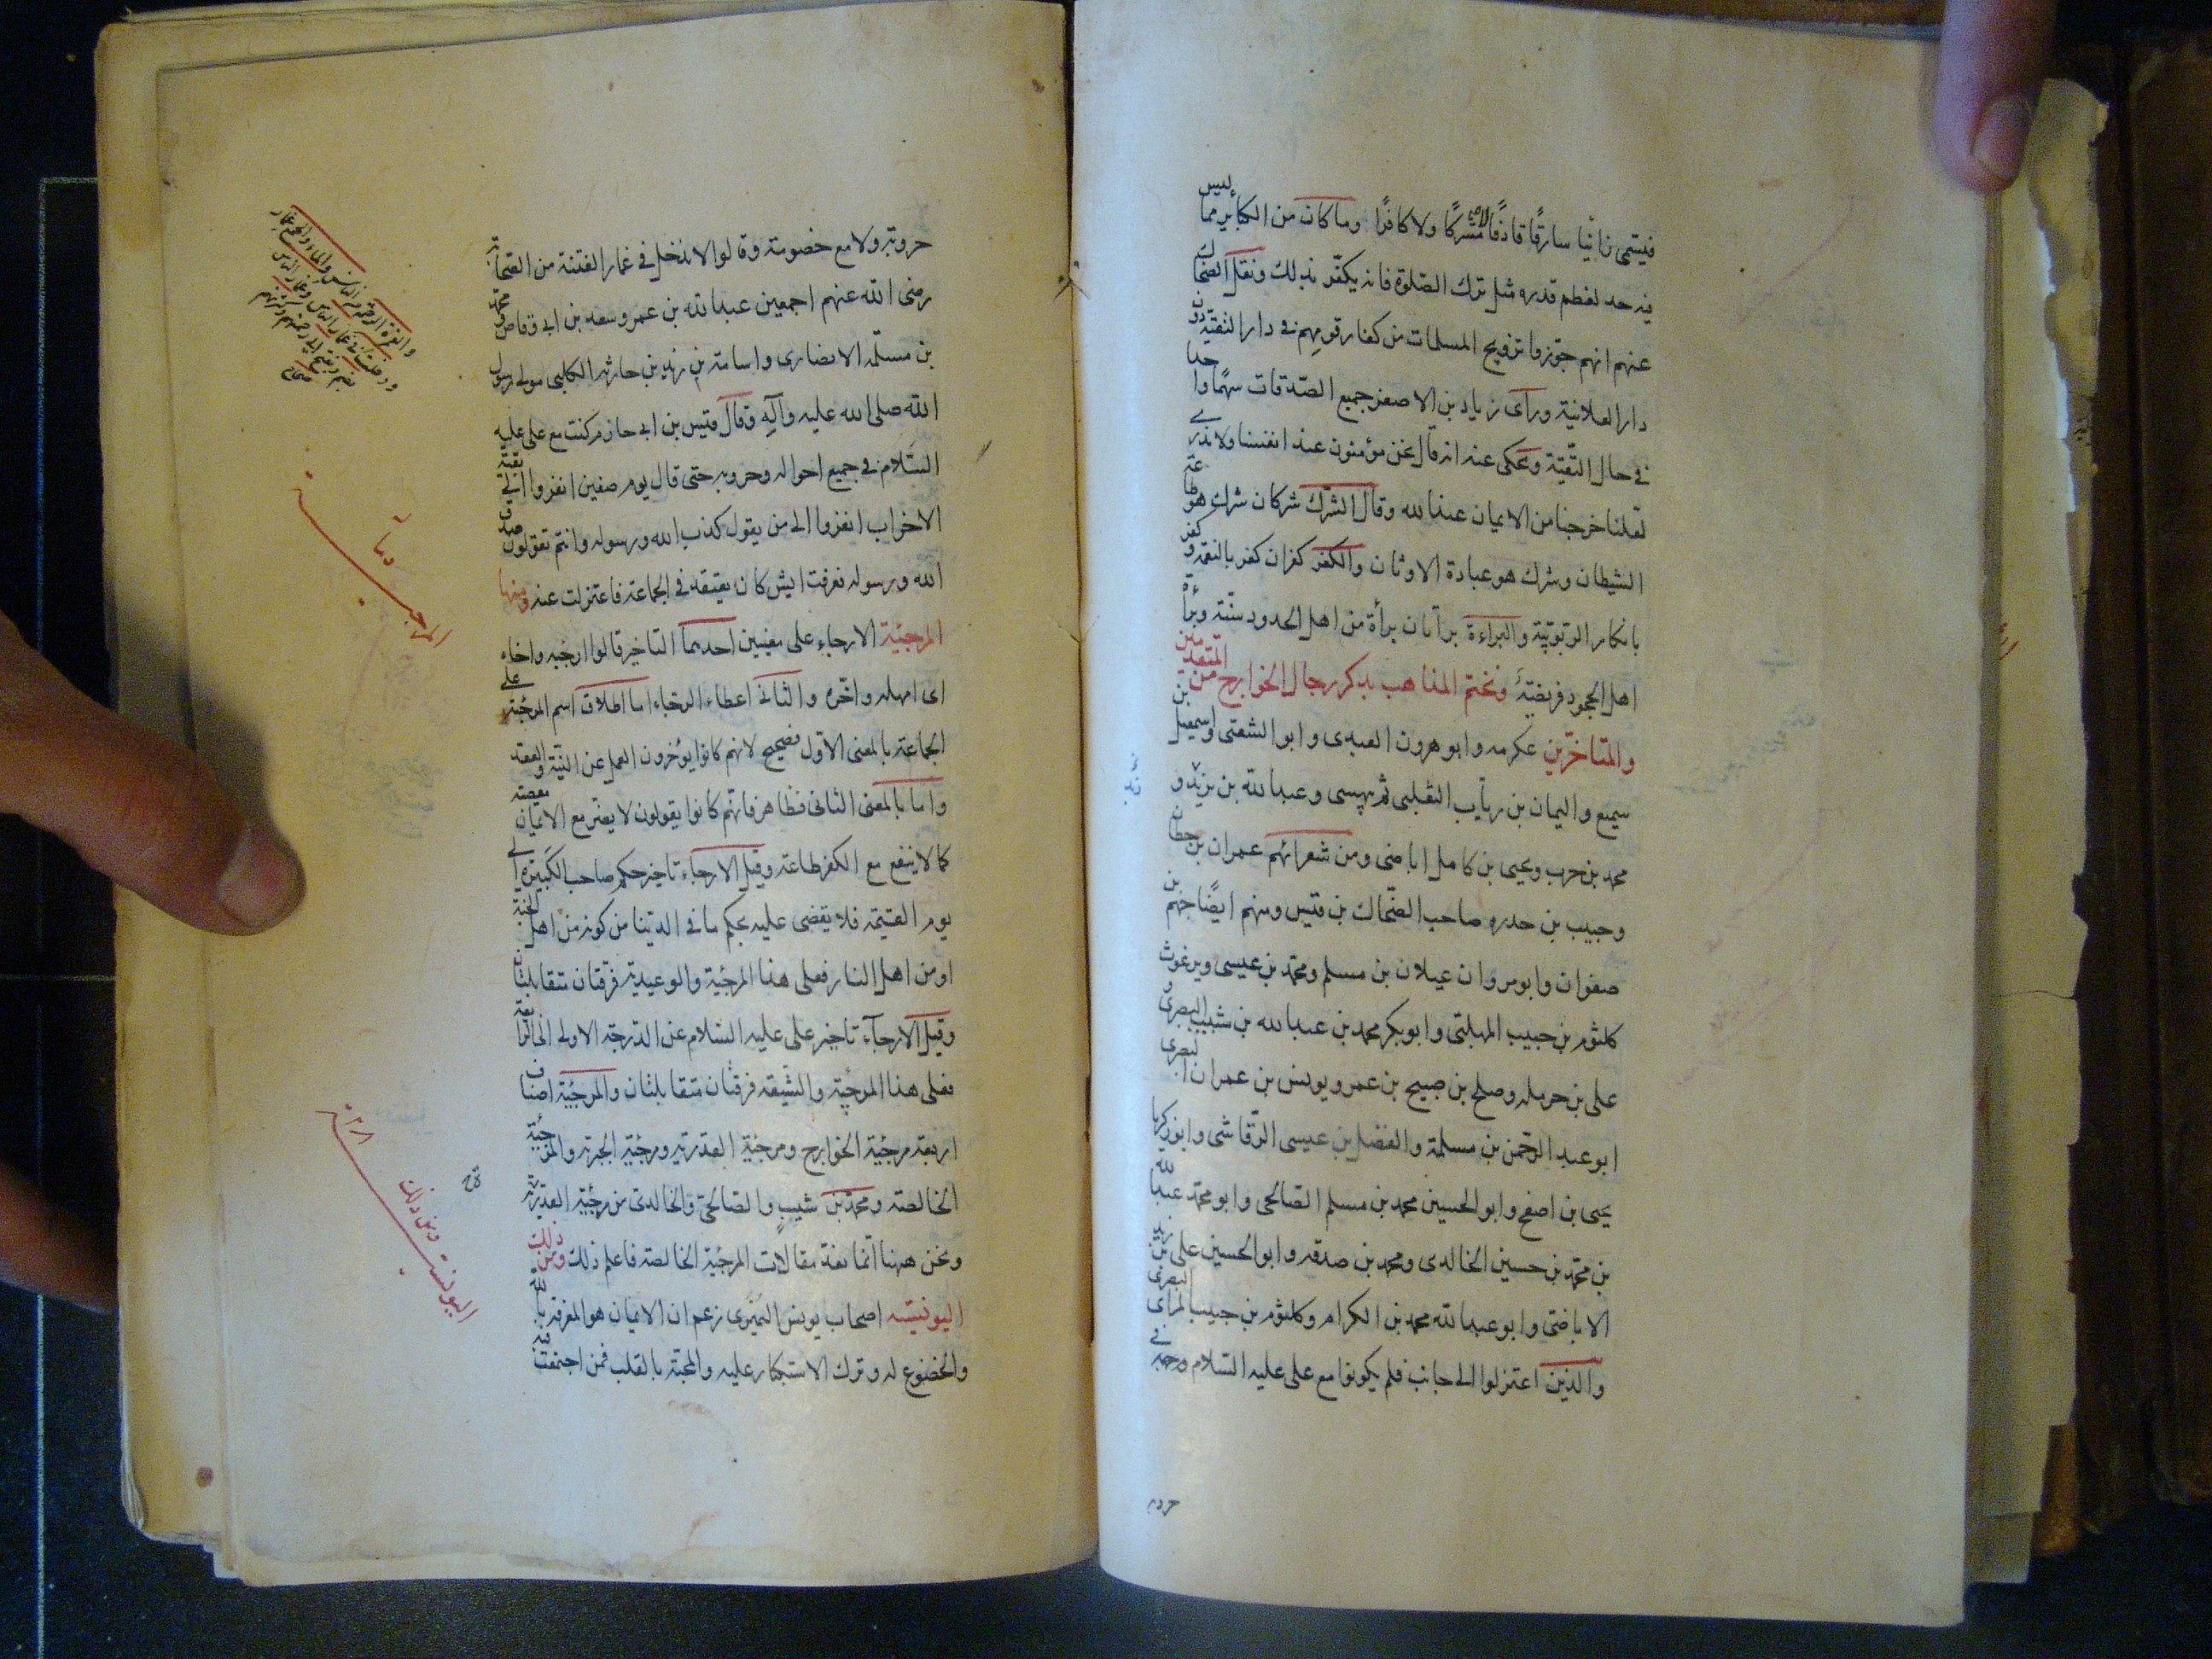 فيسمى زانيا سارقًا قاذفًا لا مشركًا ولا كافرًا وما كان من الكبائر مما ليس
فيه حد لعظم قدره مثل ترك الصلوة فانه يكفّر بذلك ونقل الضحاك
عنهم انهم جوّزوا تزويج المسلمات من كفار قومهم في دار التقيّة دون
دار العلانية ورأى زياد بن الاصفر جميع الصّدقات سهمًا واحدا
في حال التّقيّة ويحكى عنه انه قال نحن مؤمنون عند انفسنا ولا ندرى
لعلنا خرجنا من الايمان عند الله وقال الشّرك شركان شرك هو طاعة
الشيطان وشرك هو عبادة الاوثان والكفر كفران كفر بالنعمة وكفر
بانكار الربوبيّة والبراءة برآتان برأة من اهل الحدود سنّة وبرأة
من اهل الجحود فريضة ونختم المذاهب بذكر رجال الخوارج من المتقدمين
والمتاخّرين عكرمه وابو هرون العبدى وابو الشعثى واسمعيل بن
سميع واليمان بن رباب الثعلبى ثم بيهسى وعبد الله بن يزيد و
محمد بن حرب ويحيى بن كامل اباضى ومن شعرائهم عمران بن حطان
وحبيب بن حدره صاحب الضّحاك بن قيس ومنهم ايضًا جهم بن
صفوان وابو مروان غيلان بن مسلم ومحمّد بن عيسى وبرغوث و
كلثوم بن حبيب المهلبى وابو بكر محمد بن عبد الله بن شبيب البصرى
على بن حرمله وصلح بن صبيح بن عمرو ويونس بن عمران البصرى
ابو عبد الرّحمن بن مسلمة والفضل بن عيسى الرّقاشى وابو زكريا
يحيى بن اصفح وابو الحسين محمد بن مسلم الصالحى وابو محمّد عبد الله
بن محمّد بن حسين الخالدى ومحمد بن صدقه وابو الحسين على بن زيد
الاباضى وابو عبد الله محمد بن الكرام وكلثوم بن حبيب المراى البصرى
والذين اعتزلوا الى جانب فلم يكونوا مع على عليه السّلام في
حروبه
حروبه ولا مع خصومته وقالوا لا ندخل في غمار الفتنة من الصّحابة
رضى الله عنهم اجمعين عبد الله بن عمر وسعد بن ابى وقاص ومحمّد
بن مسلمه الانصارى واسامة بن زيد بن حارثه الكلبى مولى رسول
الله صلى الله عليه وآله وقال قيس بن ابى حازم كنت مع على عليه
السّلام في جميع احواله وحروبه حتى قال يوم صفين انفروا الى بقية
الاحزاب انفروا الى من يقول كذب الله ورسوله وانتم تقولون صدق
الله ورسوله فعرفت ايش كان يعتقد في الجماعة فاعتزلت عنه ومنها
المرجئية الارجاء على معنيين احدهما التاخير قالوا ارجئه واخاه
اى امهله واخّره والثانى اعطاء الرجاء اما اطلاق اسم المرجئة على
الجماعة بالمعنى الاوّل فصحيح لانهم كانوا يؤخرون العمل عن النيّة والعقد
واما بالمعنى الثانى فظاهر فانّهم كانوا يقولون لا يضر مع الايمان معصية
كما لا ينفع مع الكفر طاعة وقيل الارجاء تاخير حكم صاحب الكبيرة الى
يوم القيمة فلا يقضى عليه بحكم ما في الدّنيا من كونه من اهل الجنة
او من اهل النار فعلى هذا المرجئية والوعيدية فرقتان متقابلتان
وقيل الارجاء تاخير على عليه السلام عن الدّرجة الاولى الى الرابعة
فعلى هذا المرجئية والشّيعة فرقتان متقابلتان والمرجئية اصناف
اربعة مرجئية الخوارج ومرجئية القدريه ومرجئية الجبريه والمرجئية
الخالصة ومحمّد بن شبيب والصالحى والخالدى من مرجئية القدريّة
ونحن ههنا انّما نعدّ مقالات المرجئية الخالصة فاعلم ذلك ومن ذلك
اليونسيّه اصحاب يونس النميرى زعم ان الايمان هو المعرفة بالله
والخضوع له وترك الاستكبار عليه والمحبّة بالقلب فمن اجتمعت فيه
المرجئية
اليونسية ومن ذلك